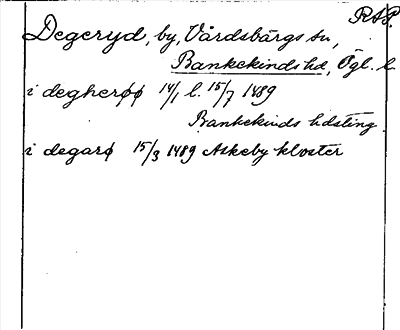 RAP.
Degeryd, by, Vårdsbärgs sn,
Bankekinds hd, Ögl. l.
i degherøø 14/1 l. 15/7 1489
Bankekinds hdsting.
i degarø 15/3 1489 Askeby kloster